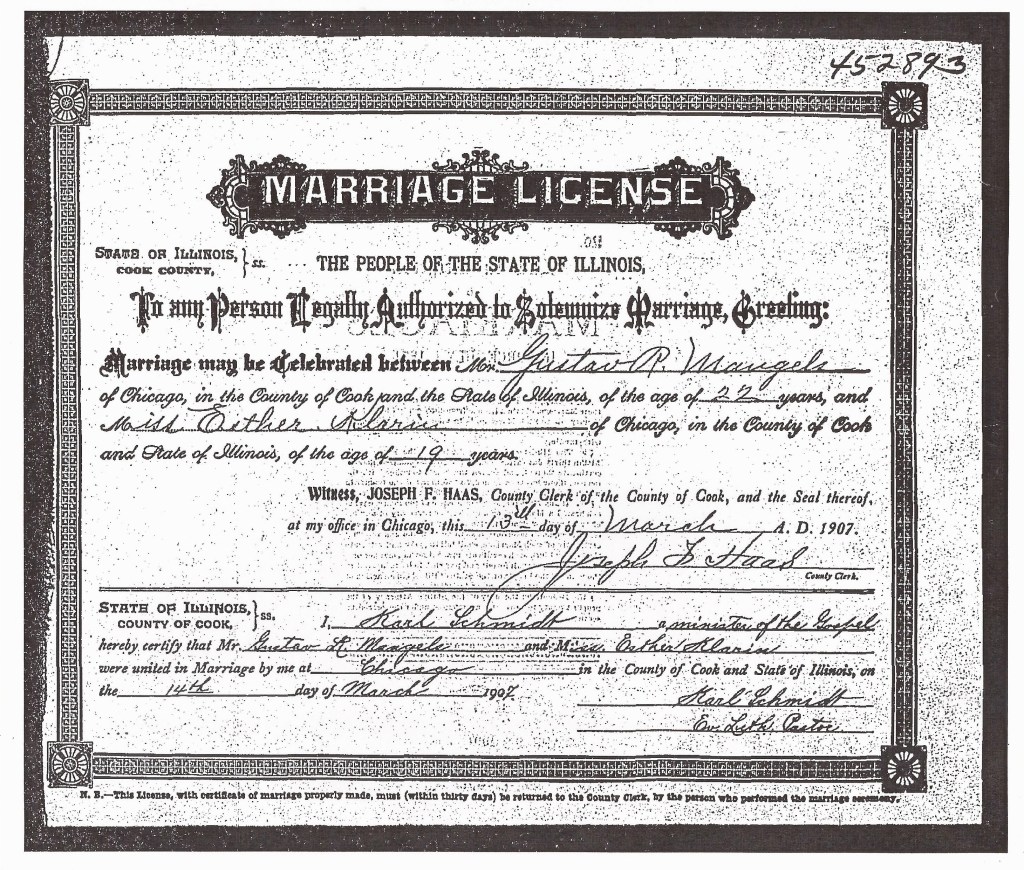 452893
MARRIAGE LICENSE
STATE OF ILLINOIS,
COOK COUNTY, } ss.
THE PEOPLE OF THE STATE OF ILLINOIS,
To any Person Legally Authorized to Solemnize Marriage, Greeting:
Marriage may be Celebrated between Mr. Gustav R. Mangels
of Chicago, in the County of Cook and the State of Illinois, of the age of 22 years, and
Miss Esther Klarin of Chicago, in the County of Cook
and State of Illinois, of the age of 19 years.
Witness, JOSEPH F. HAAS, County Clerk of the County of Cook, and the Seal thereof,
at my office in Chicago, this 13th day of March A. D. 1907.
Joseph F Haas
County Clerk.
STATE OF ILLINOIS,
COUNTY OF COOK, } ss.
I, Karl Schmidt a minister of the Gospel
hereby certify that Mr. Gustav R. Mangels and Miss Esther Klarin
were united in Marriage by me at Chicago in the County of Cook and State of Illinois, on
the 14th day of March 1907.
Karl Schmidt
Ev. Luth. Pastor.
N. B.—This License, with certificate of marriage properly made, must (within thirty days) be returned to the County Clerk, by the person who performed the marriage ceremony.